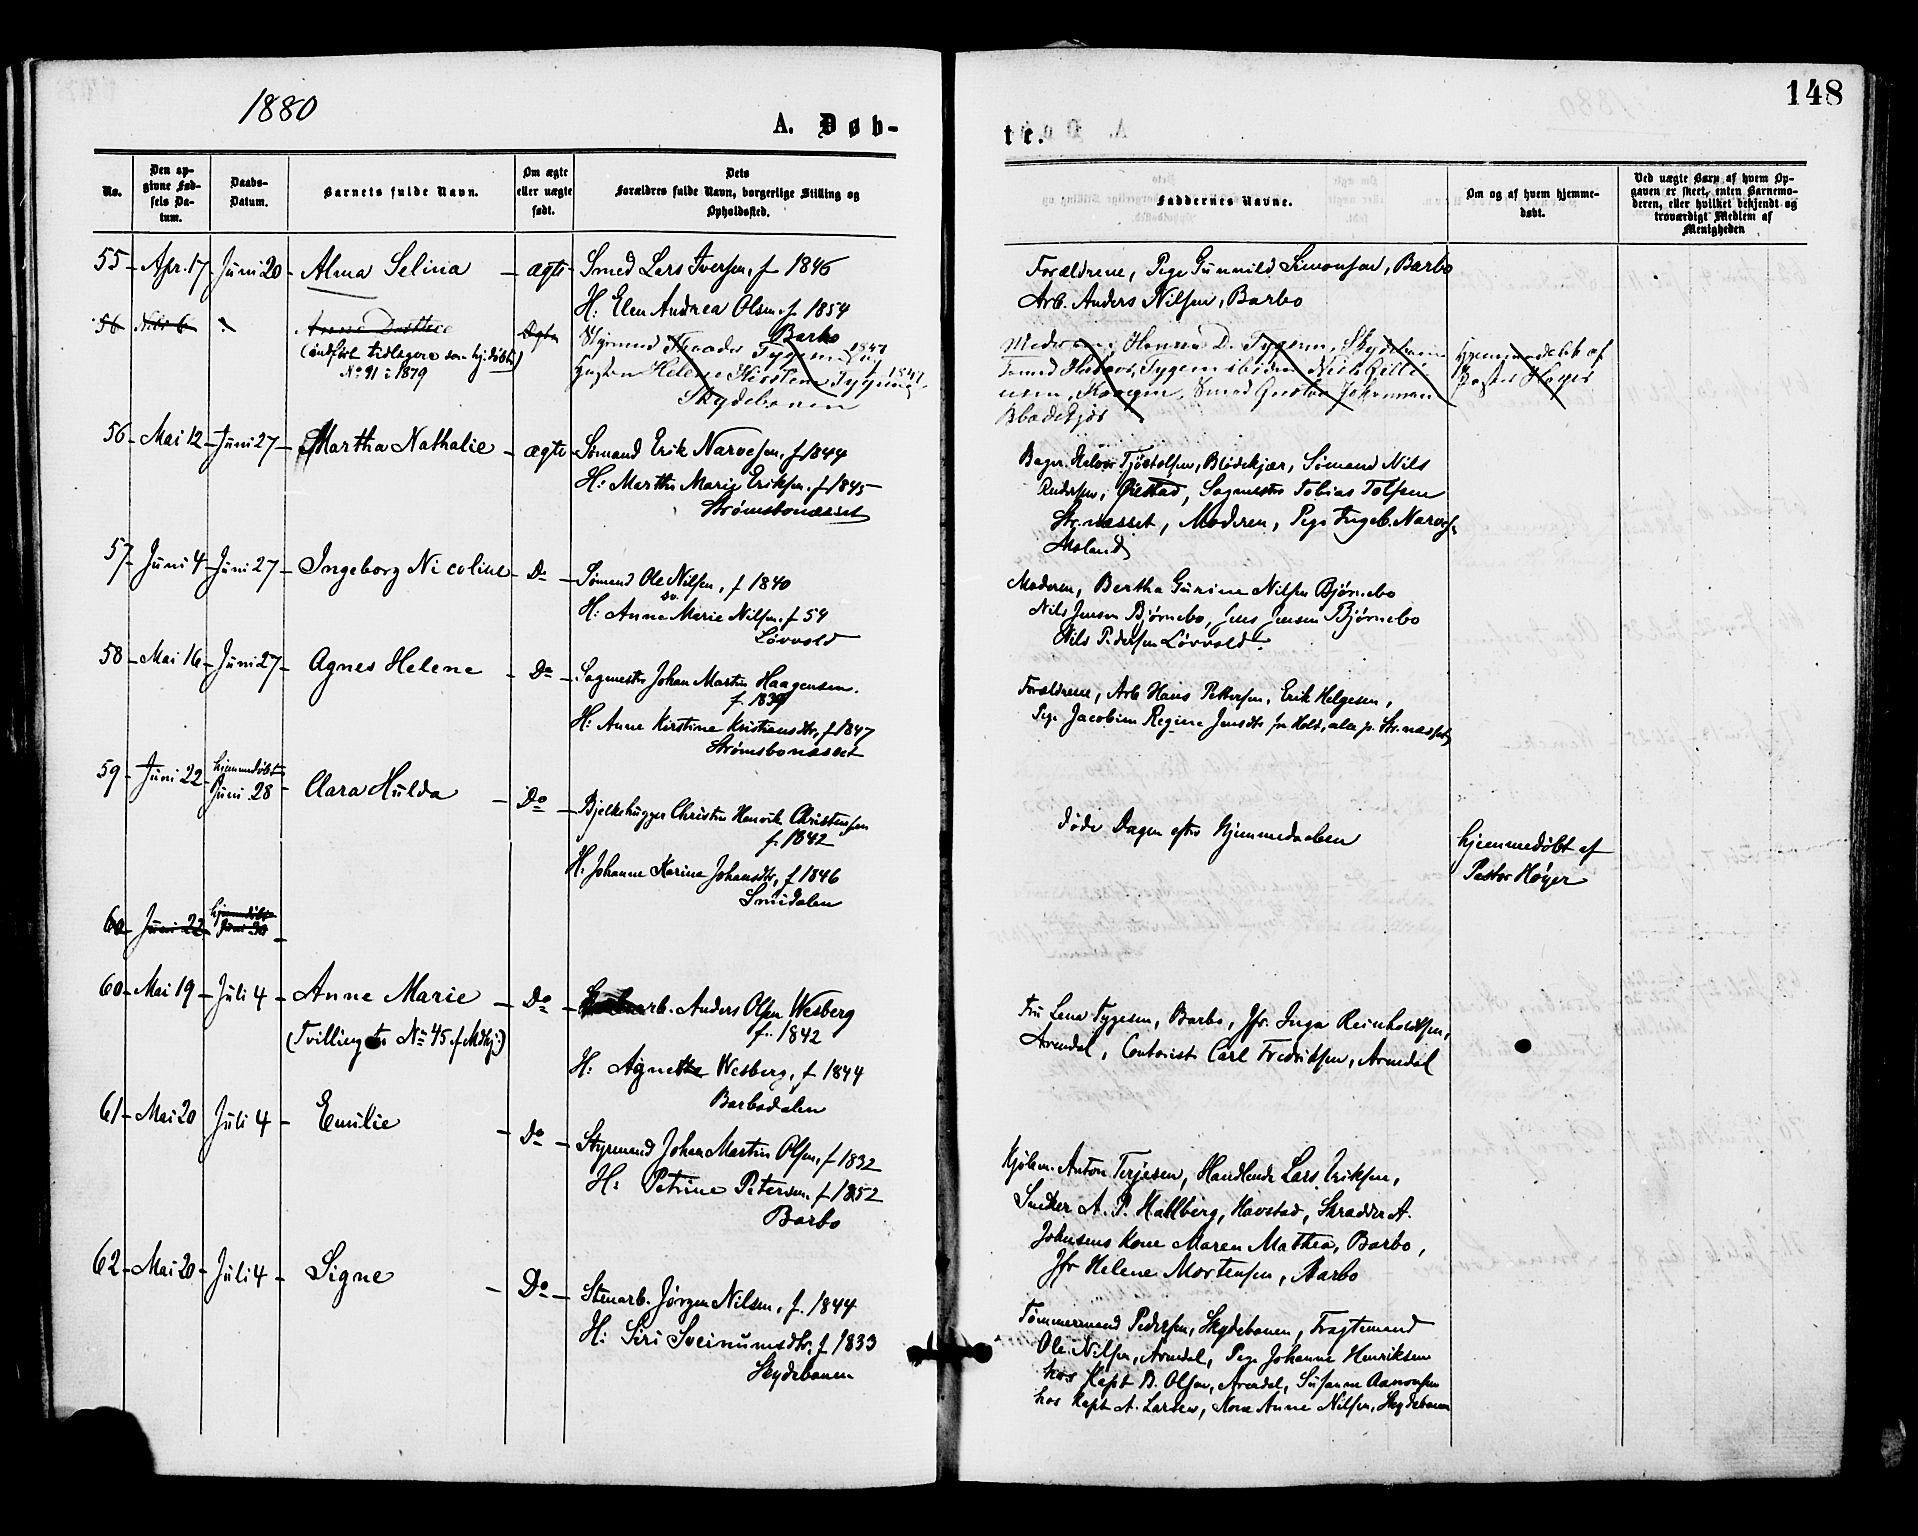 1880
148
A. Døb-
te.
No.
Den op-
givne Fød-
sels Da-
tum.
Daabs-
Datum.
Barnets fulde Navn.
Om ægte
eller uægte
født.
Dets
Forældres fulde Navn, borgerlige Stilling og
Opholdssted.
Faddernes Navne.
Om og af hvem hjemme-
døbt.
Ved uægte Barn af hvem Op-
gaven er skeet, enten Barnemo-
deren, eller hvilket bekjendt og
troværdigt Medlem af
Menigheden
55 - Apr. 17 - Juni 20 - Alma Selina - ægte
Smed Lars Iversen, f 1846
H: Elen Andrea Olsen f. 1854
Barbo
Forældrene, Pige Gunnild Simonsen, Barbo
Arb. Anders Nilsen, Barbo
56
Anne Dorthea
(indført tidligere som hj:døbt)
No 91 i 1879
Ægte
Styrmand Theodor Tygesen 1847
Hustru Helene Kirstine Tygesen f. 1847
Skydebanen
Hjemmedøbt af
Pastor Høyer
56 - Mai 12 - Juni 27 - Martha Nathalie - ægte
Sømand Erik Narvesen, f 1844
H: Marthe Marie Eriksen. f 1845
Strømsbonæsset
Bager Halvor Tjøstolfsen, Blødekjær, Sømand Nils
Andersen, Øiestad, Sagmester Tobias Tolfsen
Str.næsset, Moderen, Pige Ingeb. Narves.
57 - Juni 4 - Juni 27 - Ingeborg Nicoline - Do
Sømand Ole Nilsen, f 1840
H: Anne Marie Nilsen. f 54
Løvvold
Moderen, Bertha Gurine Nilsen Bjørnebo
Nils Jensen Bjørnebo, Jens Jensen Bjørnebo
Nils Pedersen Løvvold.
58 - Mai 16 - Juni 27 - Agnes Helene - Do
Sagmester Johan Martin Haagensen.
f. 1839
H: Anne Kirstine Kristensdtr, f 1847
Strømsbonæsset
Forældrene, Arb Hans Pettersen, Erik Helgesen,
Pige Jacobine Regine Jensdtr fra Holt, alle p. Str.næsset
59 - Juni 22 - hjemmedøbt
Juni 28 - Clara Hulda - Do
Bjelkehugger Christen Henrik Christensen
f. 1842
H: Johanne Karine Johansdtr, f 1846
Smidalen
døde Dagen efter Hjemmedaaben
hjemmedøbt af
Pastor Høyer
60 - Juni 22 - hjemmedøbt
Juni 30
60 - Mai 19 - Juli 4 - Anne Marie - Do
(Tvilling til No 45 f Mdkj:)
arb. Anders Olsen Wesberg
f. 1842
H: Agnethe Wesberg, f 1844
Barbodalen
Fru Lena Tygesen, Barbo, Jfr. Inga Reinholdtsen,
Arendal, Contorist Carl Fredriksen, Arendal
61 - Mai 20 Juli 4 - Emilie - Do
Styrmand Johan Martin Olsen, f 1832
H: Petrine Petersen. f 1852
Barbo
Kjøbm. Anton Terjesen, Handlende Lars Eriksen,
Snedker A. P. Hallberg, Havstad, Skrædder A.
Johnsens Kone Maren Mathea, Barbo,
Jfr Helene Mortensen, Barbo
62 - Mai 20 - Juli 4 - Signe - Do
Stenarb. Jørgen Nilsen, f. 1844
H: Siri Sveinumsdtr. f 1833
Skydebanen
Tømmermand Pedersen, Skydebanen, Fragtemand
Ole Nilsen, Arendal, Pige Johanne Henriksen
hos Kapt B. Olsen, Arendal, Susanne Aanonsen
hos Kapt A. Larsen, Kone Anne Nilsen, Skydebanen